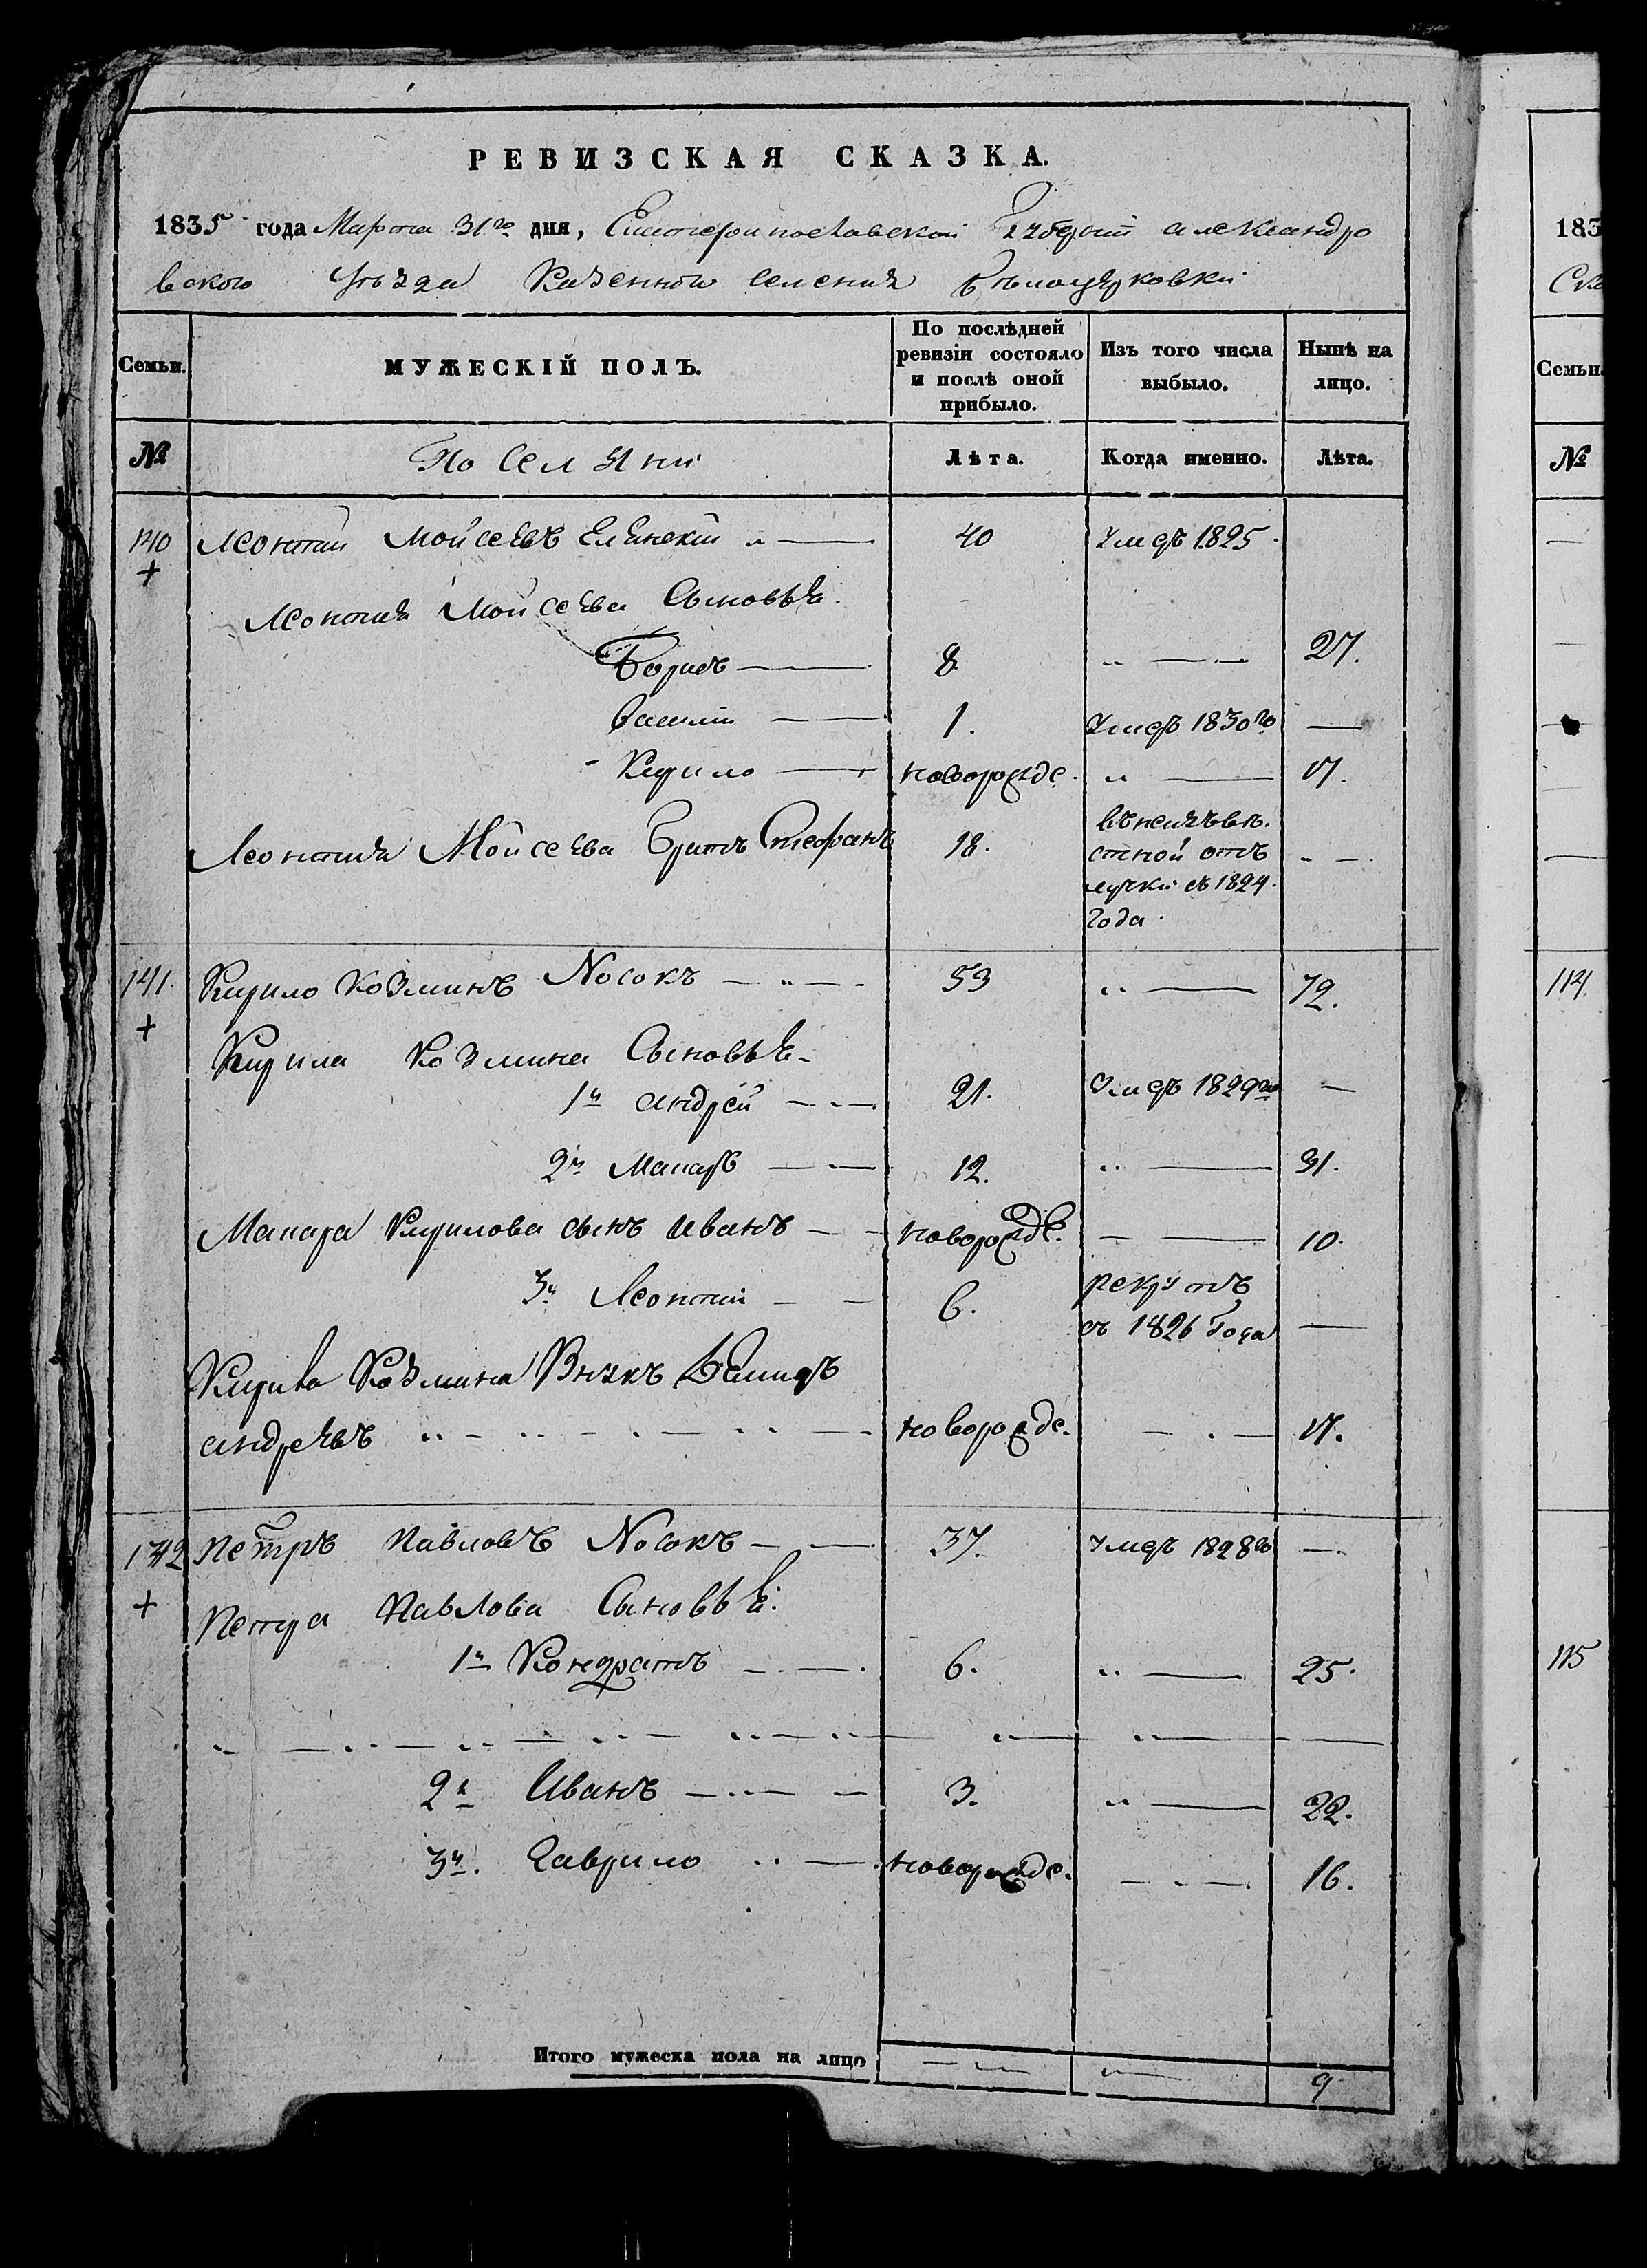 РЕВИЗСКАЯ СКАЗКА.
1835 года Марта 31го дня, Екатеринославской Губерніи александро
вского Уѣзда Казенного селенія Бѣлоцерковки
Семьи. МУЖЕСКІЙ ПОЛЪ. По послѣдней ревизіи состояло и послѣ оной прибыло. Изъ того числа выбыло. Нынѣ на лицо.
№ Поселяни Лѣта. Когда именно. Лѣта.
140 Леонтий Мойсеевъ 40 Умеръ 1825
+
Леонтия Мойсеева Сыновья
Борисъ 8 27.
Василій 1. Умеръ 1830го
Кирило новорожде. 17.
Леонтия Мойсеева Братъ Стефанъ 18. въ неизвѣ
стной отъ
лучки съ 1824
года
141. Кирило Козминъ Носокъ 53 72.
+
Кирила Козмина Сыновья
1й андрей 21. Умеръ 1829го
2й Макаръ 12. 31.
Макара Кирилова сынъ иванъ новорожде. 10.
3й Леонтий 6. рекрутъ
съ 1826 Года
Кирила Козмина Внукъ
андреевъ новорожде. 17.
142 Петръ Павловъ Носокъ 37. Умеръ 1828го
+
Петра Павлова Сыновья
1й Кондратъ 6. 25.
2й Иванъ 3. 22.
3й. Гаврило новорожде. 16.
Итого мужеска пола на лицо 9
183
Семьи
№
114.
115